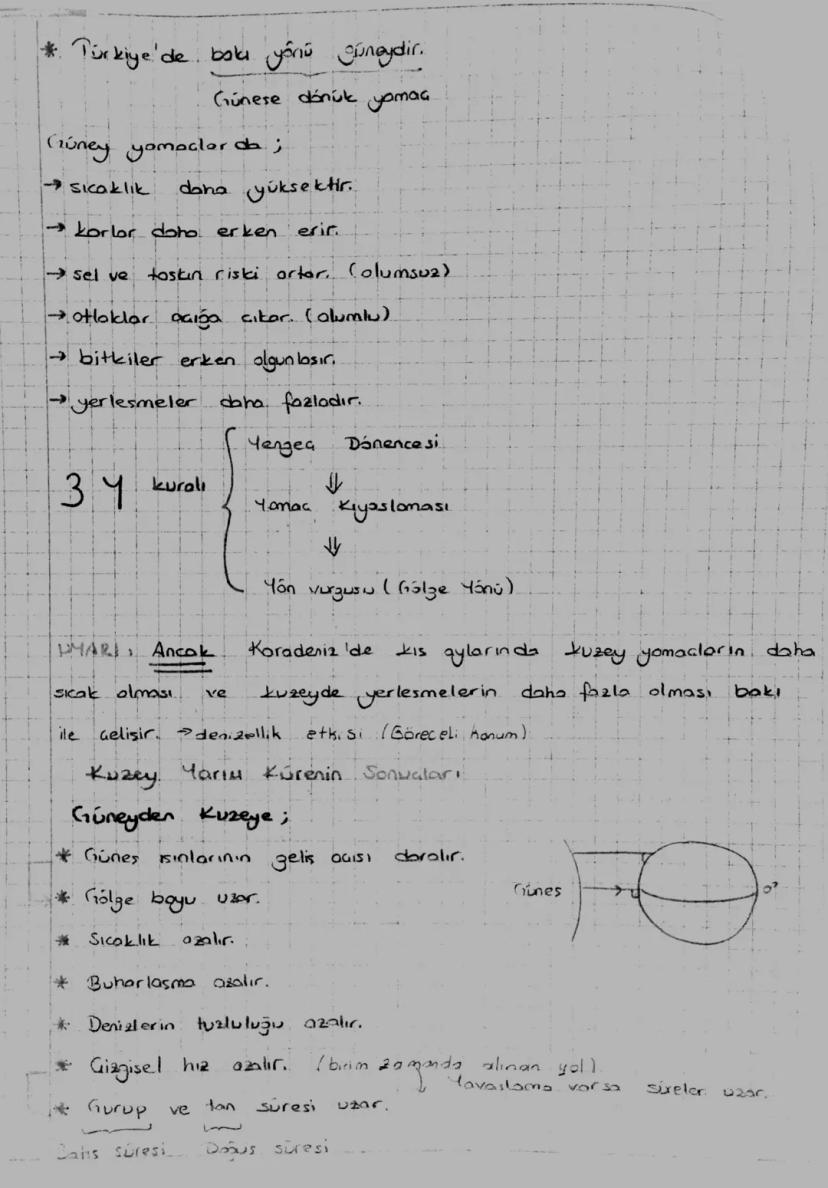 * Türkiye'de bakı yönü güneydir.
Güneşe dönük yamaç
Güney yamaçlarda ;
→ sıcaklık daha yüksektir.
→ karlar daha erken erir.
→ sel ve taşkın riski artar. (olumsuz)
→ otlaklar açığa çıkar. (olumlu)
→ bitkiler erken olgunlaşır.
→ yerleşmeler daha fazladır.
Yengeç Dönencesi
⇓
3Y kuralı
Yamaç Kıyaslaması
⇓
Yön vurgusu (Gölge Yönü)
UYARI: Ancak Karadeniz'de kış aylarında kuzey yamaçların daha
sıcak olması ve kuzeyde yerleşmelerin daha fazla olması bakı
ile çelişir. → denizellik etkisi (Göreceli konum)
Kuzey Yarım Kürenin Sonuçları
Güneyden Kuzeye ;
* Güneş ışınlarının geliş açısı daralır.
Güneş → 0°
* Gölge boyu uzar.
* Sıcaklık azalır.
* Buharlaşma azalır.
* Denizlerin tuzluluğu azalır.
* Çizgisel hız azalır. (birim zamanda alınan yol)
↓ Yavaşlama varsa süreler uzar.
* Gurup ve tan süresi uzar.
Batış süresi Doğuş süresi